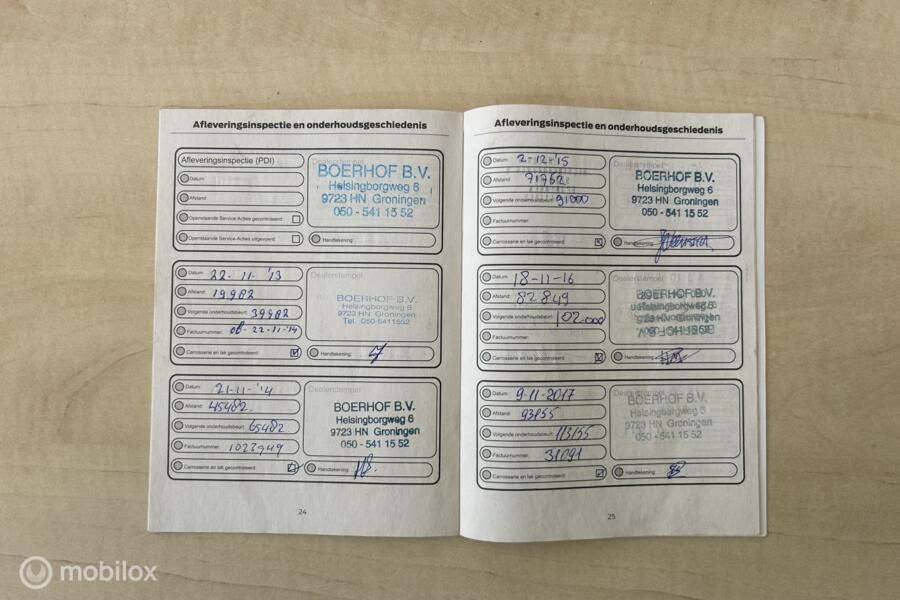 Afleveringsinspectie en onderhoudsgeschiedenis
Afleveringsinspectie (PDI)
Datum:
Afstand:
Openstaande Service-Acties gecontroleerd:
Openstaande Service-Acties uitgevoerd:
Dealerstempel
BOERHOF B.V.
Helsingborgweg 6
9723 HN Groningen
050 - 541 15 52
Handtekening:
Datum: 22-11-'13
Afstand: 19.982
Volgende onderhoudsbeurt: 39982
Factuurnummer: 22-11-'14
Carrosserie en lak gecontroleerd:
Dealerstempel
BOERHOF B.V.
Helsingborgweg 6
9723 HN Groningen
Tel. 050-5411552
Handtekening:
Datum: 21-11-'14
Afstand: 45482
Volgende onderhoudsbeurt: 65482
Factuurnummer: 1022949
Carrosserie en lak gecontroleerd:
Dealerstempel
BOERHOF B.V.
Helsingborgweg 6
9723 HN Groningen
050 - 541 15 52
Handtekening:
24
Afleveringsinspectie en onderhoudsgeschiedenis
Datum: 2-12-'15
Afstand: 71762
Volgende onderhoudsbeurt: 91000
Factuurnummer:
Carrosserie en lak gecontroleerd:
Dealerstempel
BOERHOF B.V.
Helsingborgweg 6
9723 HN Groningen
050 - 541 15 52
Handtekening:
Datum: 18-11-16
Afstand: 82849
Volgende onderhoudsbeurt: 102.000
Factuurnummer:
Carrosserie en lak gecontroleerd:
BOERHOF B.V.
Groningen
Handtekening:
Datum: 9-11-2017
Afstand: 93155
Volgende onderhoudsbeurt: 113155
Factuurnummer: 31091
Carrosserie en lak gecontroleerd:
Dealerstempel
BOERHOF B.V.
Helsingborgweg 6
9723 HN Groningen
050 - 541 15 52
Handtekening:
25
mobilox